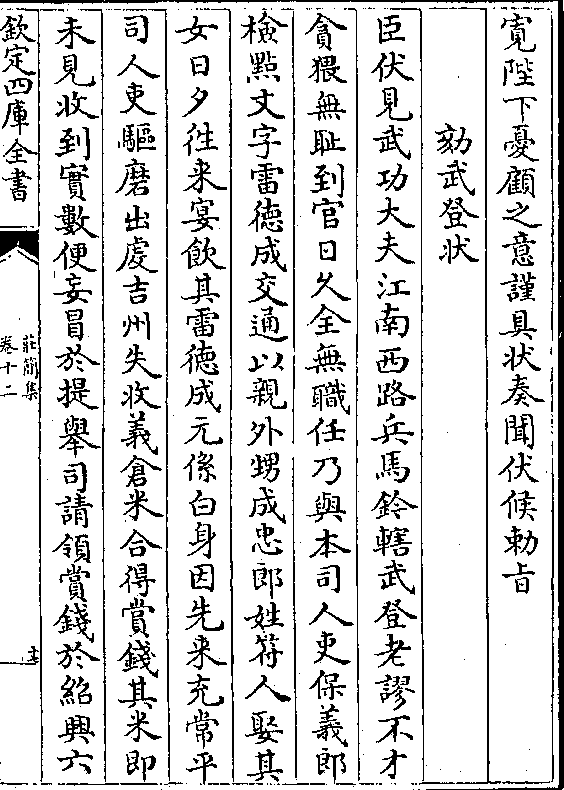 寛陛下憂顧之意謹具状奏聞伏候勅㫖
劾武登状
臣伏見武功大夫江南西路兵馬鈴轄武登老謬不才
貪猥無耻到官日久全無職任乃與本司人吏保義郎
檢點文字雷徳成交通以親外甥成忠郎姓符人娶其
女日夕徃来宴飲其雷徳成元係白身因先来充常平
司人吏驅磨出䖏吉州失收義倉米合得賞錢其米即
未見收到實數便妄冒於提舉司請領賞錢於紹興六
欽定四庫全書
莊簡集
卷十二